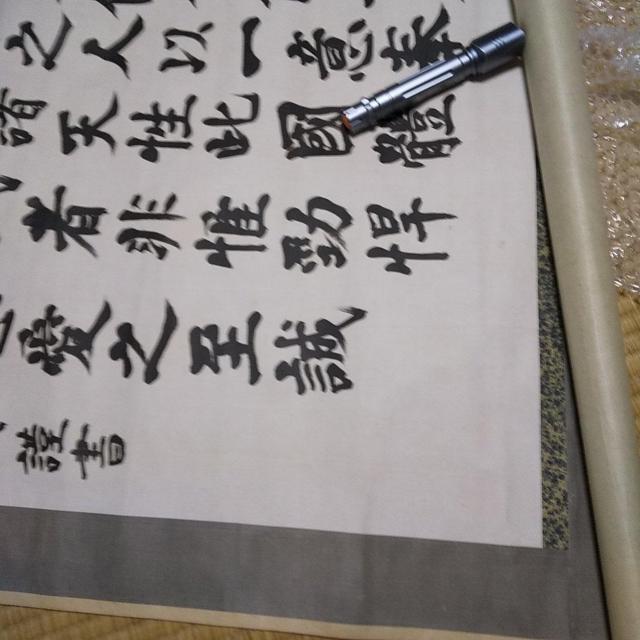 之人以一意奉
諸天性此國體
者非惟勁悍
愛之至誠
謹書